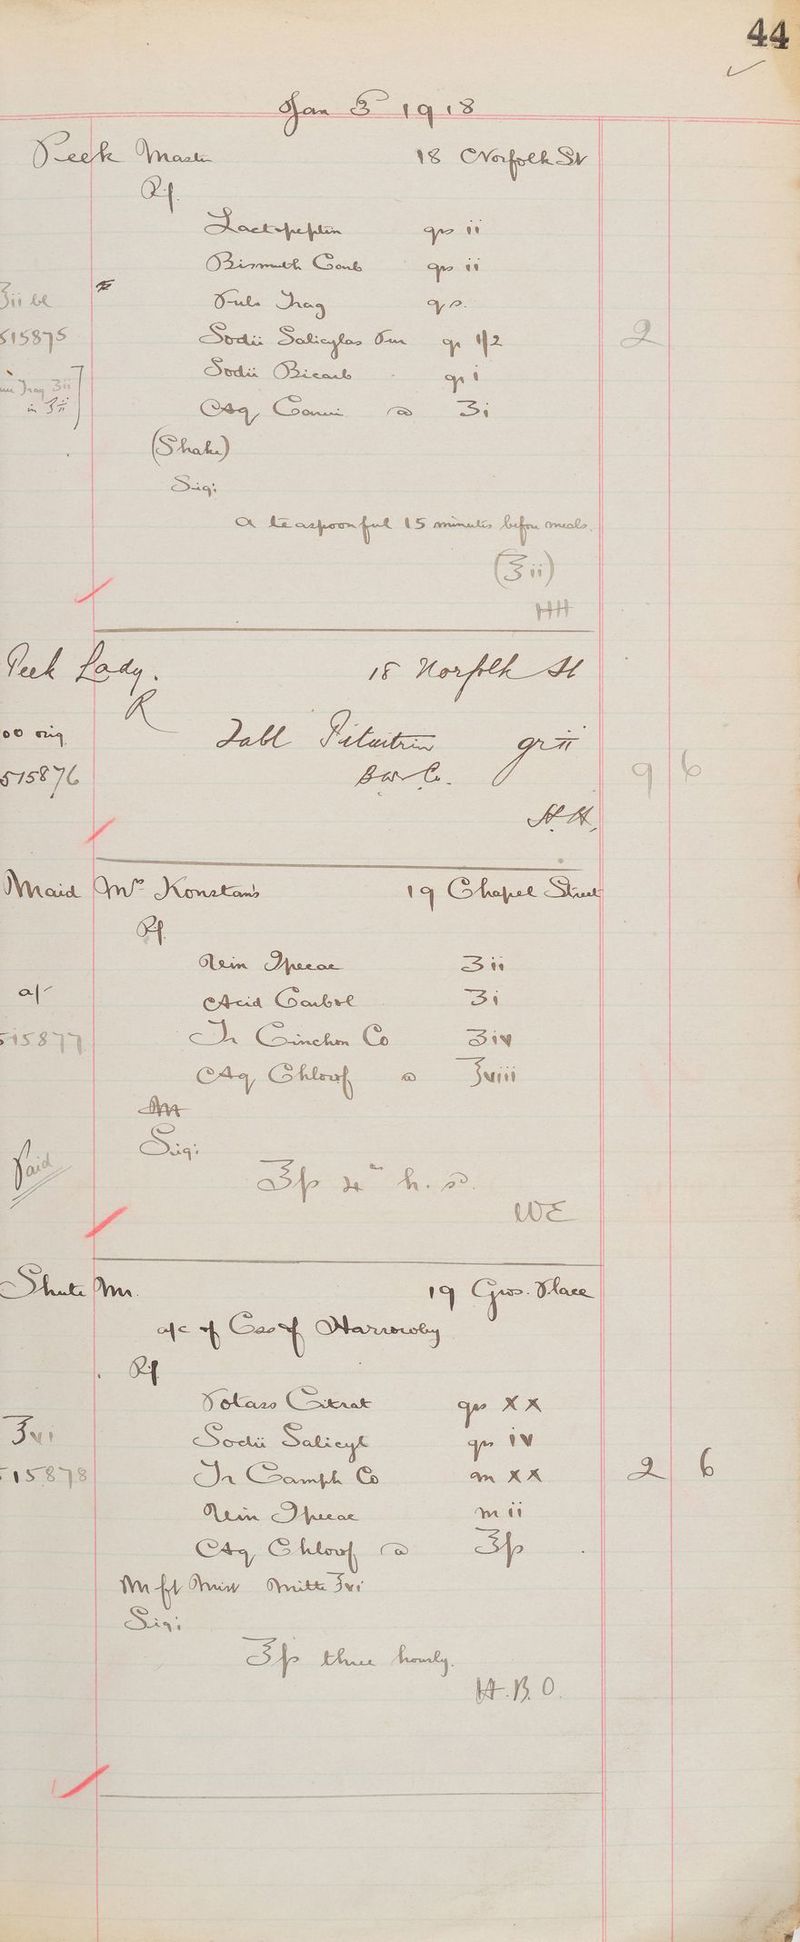 44
Jan 3 1918
Peek Master 18 Norfolk St
Rf.
Lactopeptin grs ii
Bismuth Carb grs ii
℥ii bl
Pulv Trag q.s.
515875 Sodii Salicylas Pur gr 1/2 2
Sodii Bicarb gr i
Trag ʒii
in ℥ii
Aq Carui a ʒi
(Shake)
Sig:
a teaspoonful 15 minutes before meals.
(℥ii)
HH
Peek Lady. 18 Norfolk St
R
00 orig Tabl Pituitrin gr ii
515876 B W & Co. 9 6
H.H.
Maid Mrs Konstan's 19 Chapel Street
Rf
Vin Ipecac ʒii
a/- Acid Carbol ʒi
515877 Tr Cinchon Co ʒiv
Aq Chlorof a ℥viii
M
Sig:
Paid
℥ß 4ta h. s.
WE
Shute Mr. 19 Gros. Place
a/c of Css of Harrowby
Rf
Potass Citrat grs xx
℥vi Sodii Salicyl grs iv
515878 Tr Camph Co m xx 2 6
Vin Ipecac m ii
Aq Chlorof a ℥ß
M ft Mist Mitte ℥vi
Sig:
℥ß three hourly.
H.B.O.